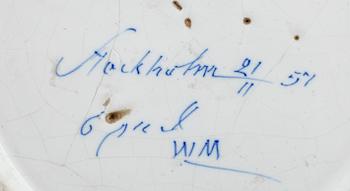 Stockholm 21/11 57
WM